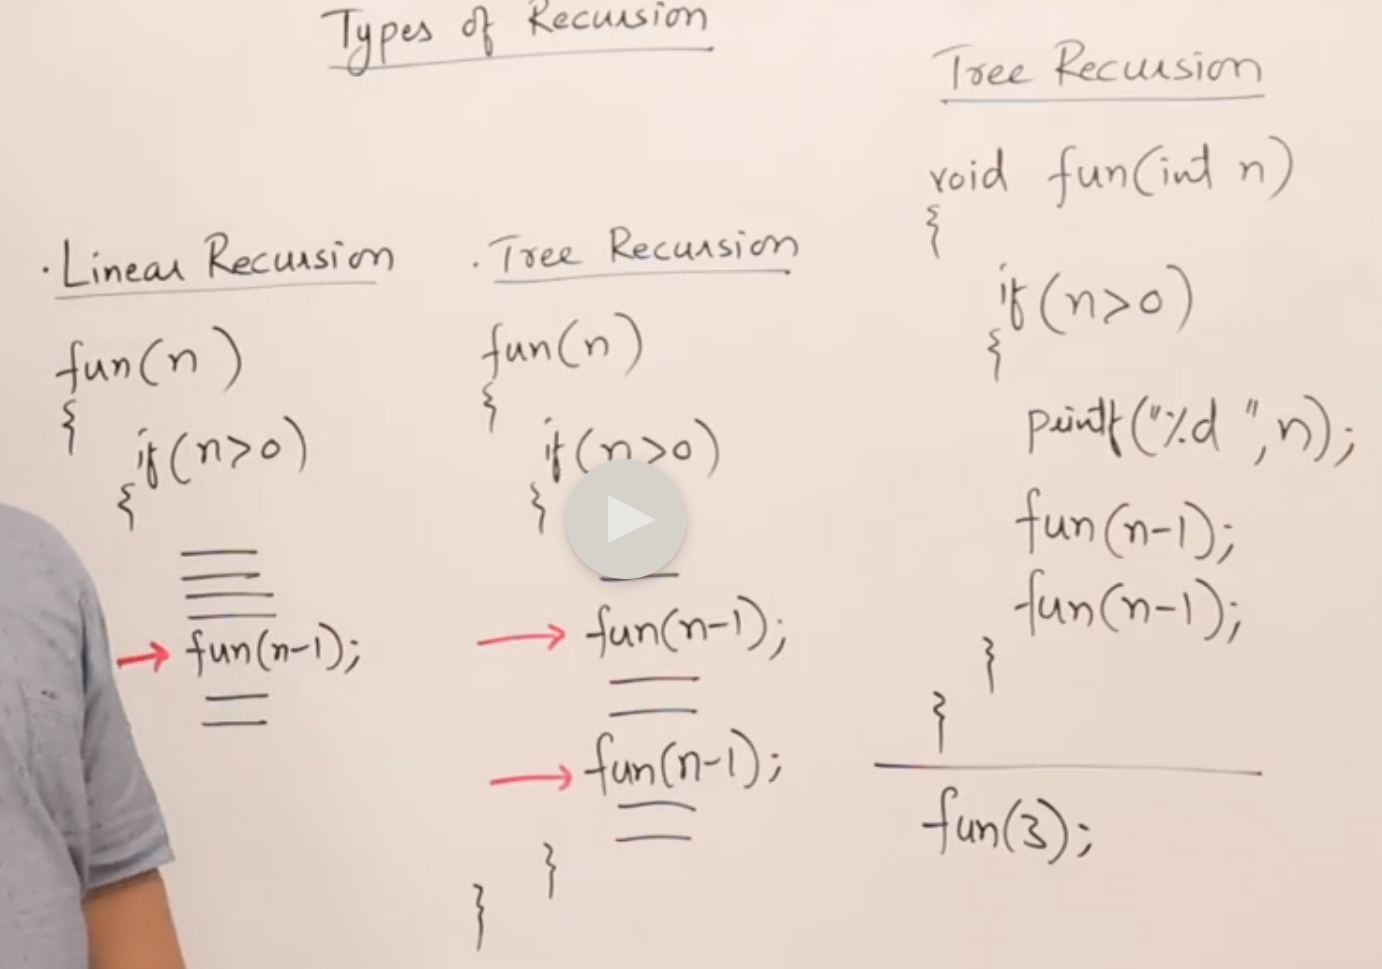 Types of Recursion
· Linear Recursion
fun(n)
{
if(n>0)
{
fun(n-1);
· Tree Recursion
fun(n)
{
if(n>0)
{
fun(n-1);
fun(n-1);
}
}
Tree Recursion
void fun(int n)
{
if(n>0)
{
printf("%d ",n);
fun(n-1);
fun(n-1);
}
}
fun(3);